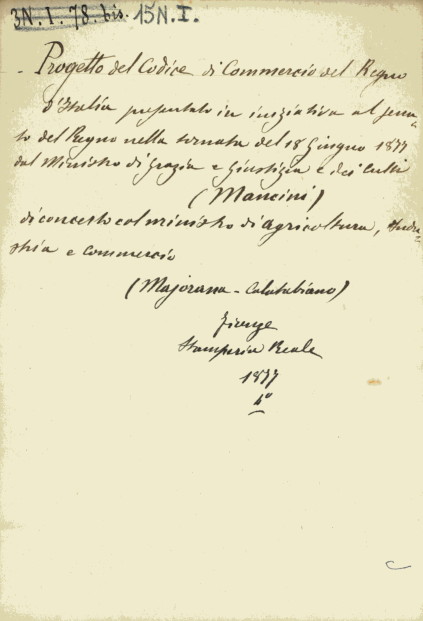 3N. I. 78. bis. 15 N. I.
Progetto del Codice di Commercio del Regno
d'Italia presentato in iniziativa al Sena-
to del Regno nella tornata del 18 Giugno 1877
dal Ministro di Grazia e Giustizia e dei Culti
(Mancini)
di concerto col ministro di agricoltura, Indu-
stria e Commercio
(Majorana-Calatabiano)
Firenze
Stamperia Reale
1877
4°